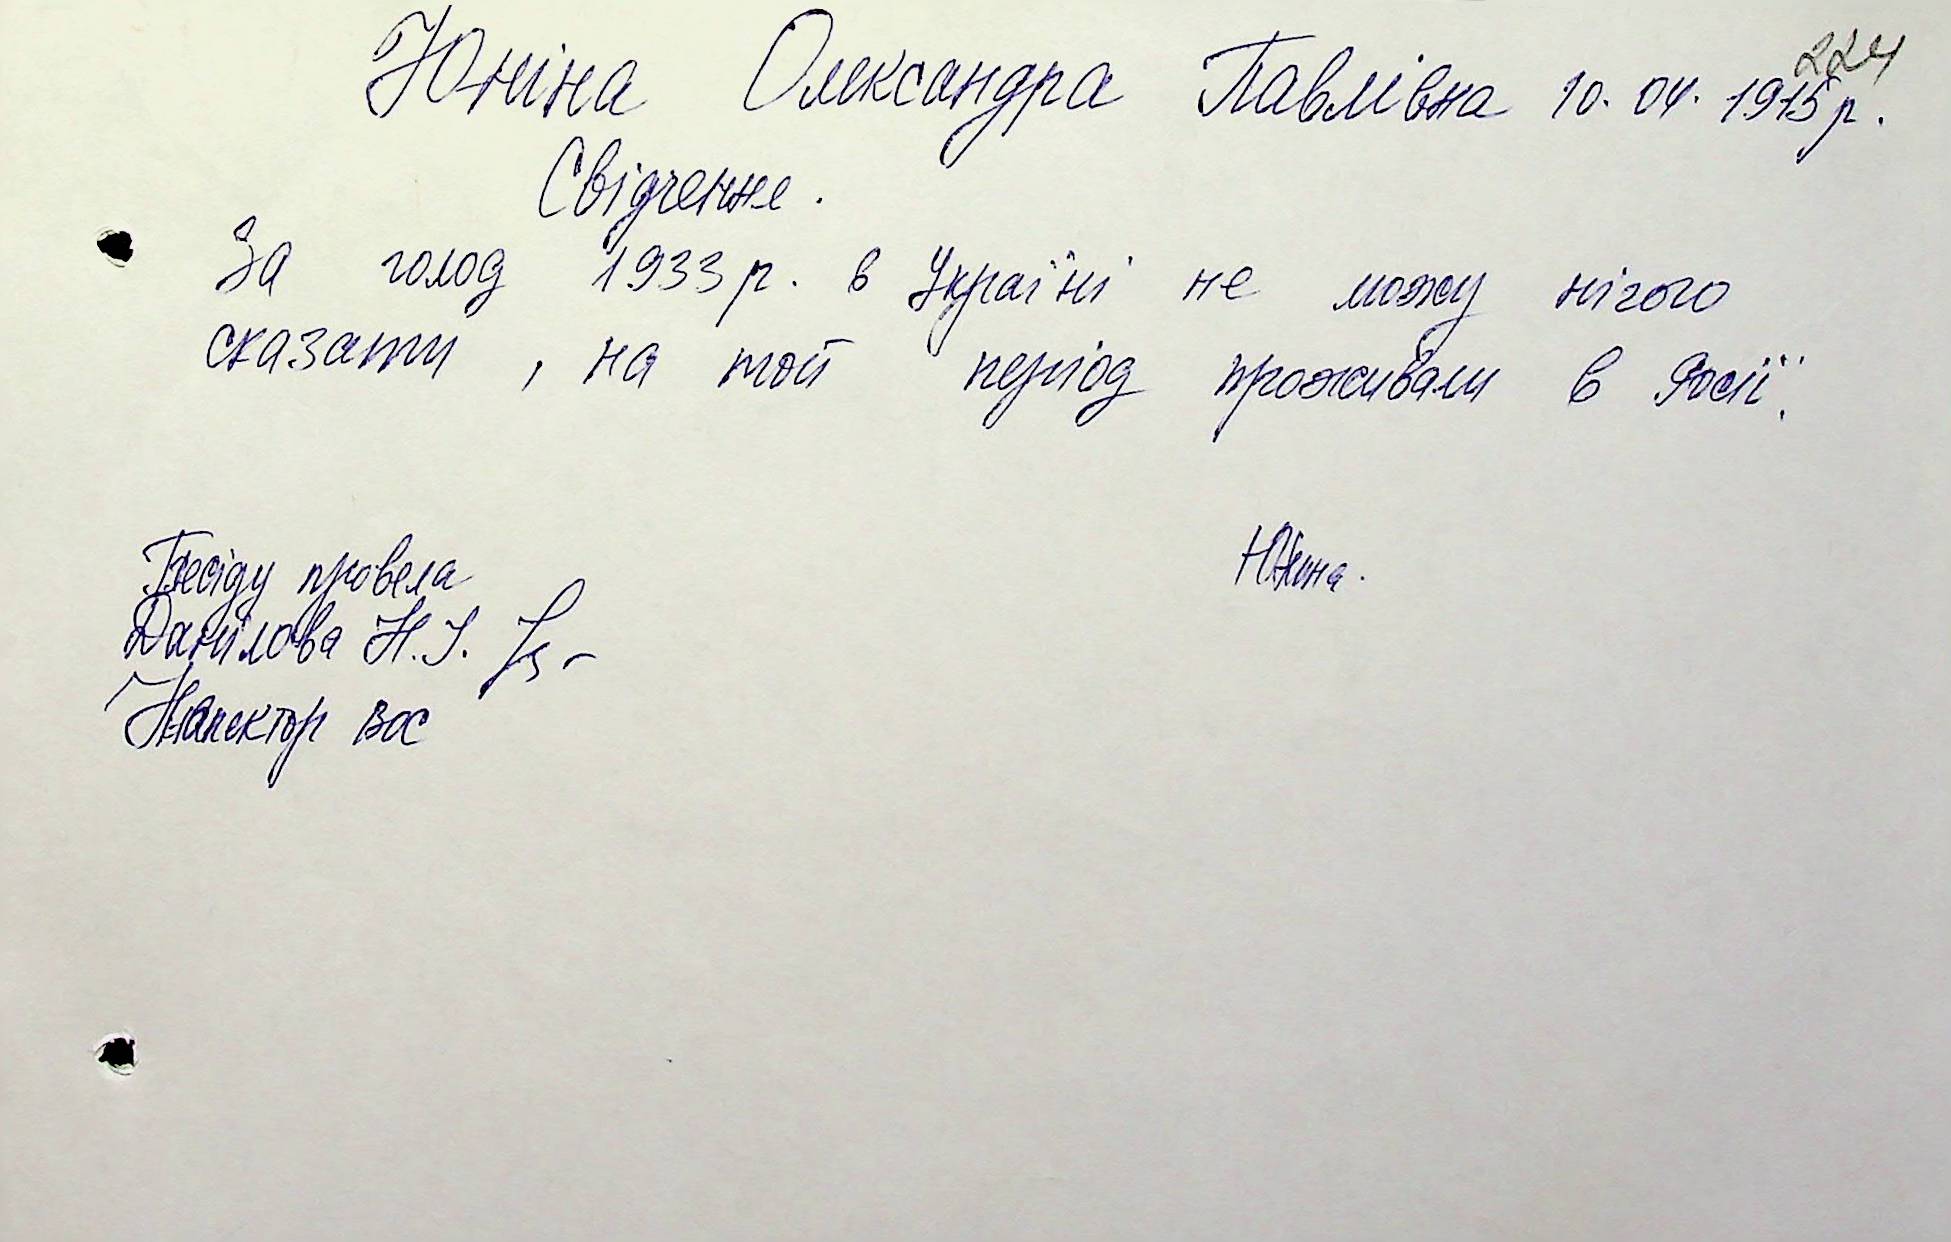 224
Юніна Олександра Павлівна 10.04.1915 р.
Свідчення.
За голод 1933 р. в Україні не можу нічого
сказати, на той період проживали в Росії.
Юніна.
Бесіду провела
Данілова Н.І.
Інспектор ВОС